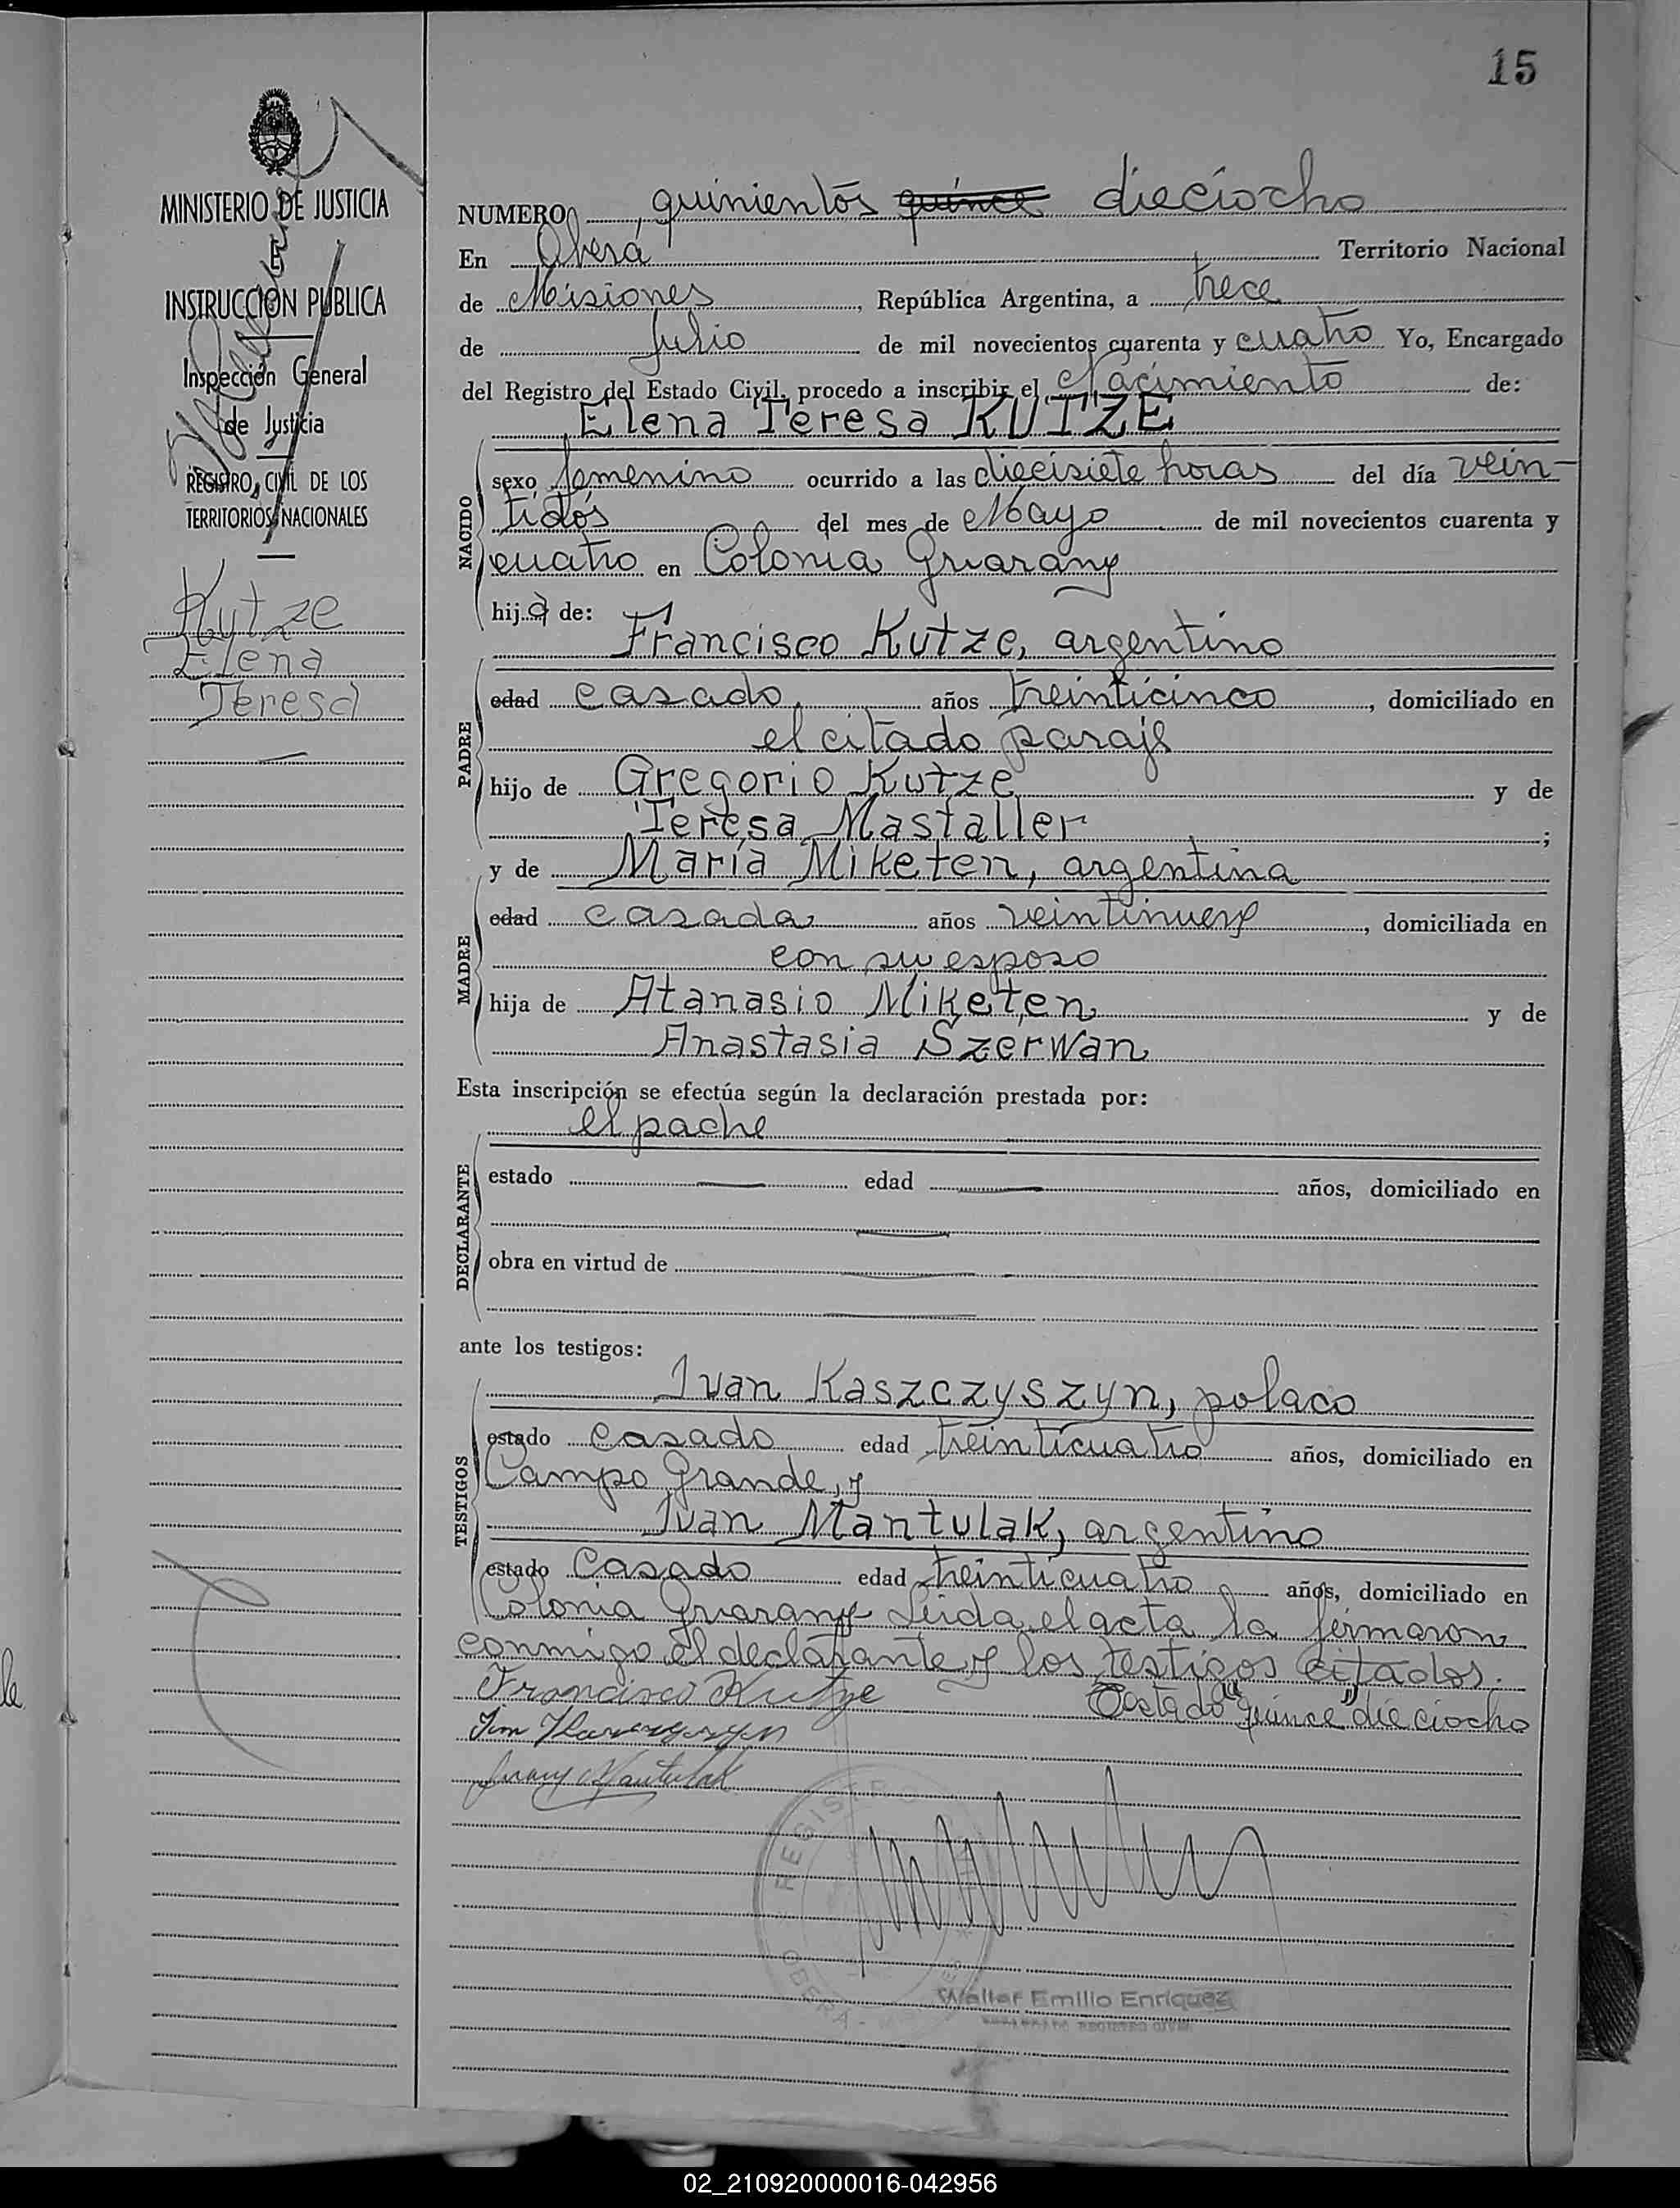 15
MINISTERIO DE JUSTICIA
INSTRUCCION PUBLICA
Inspección General
de Justicia
REGISTRO CIVIL DE LOS
TERRITORIOS NACIONALES
Kutze
Elena
Teresa
NUMERO quinientos quince dieciocho
En Oberá Territorio Nacional
de Misiones, República Argentina, a trece
de Julio de mil novecientos cuarenta y cuatro Yo, Encargado
del Registro del Estado Civil, procedo a inscribir el Nacimiento de:
Elena Teresa KUTZE
NACIDO
sexo femenino ocurrido a las diecisiete horas del día vein-
tidos del mes de Mayo de mil novecientos cuarenta y
cuatro en Colonia Guarany
hija de:
Francisco Kutze, argentino
PADRE
edad casado años treinticinco, domiciliado en
el citado paraje
hijo de Gregorio Kutze y de
Teresa Mastaller;
y de María Miketen, argentina
MADRE
edad casada años veintinueve, domiciliada en
con su esposo
hija de Atanasio Miketen y de
Anastasia Szerwan
Esta inscripción se efectúa según la declaración prestada por:
el padre
DECLARANTE
estado edad años, domiciliado en
obra en virtud de
ante los testigos:
TESTIGOS
Ivan Kaszczyszyn, polaco
estado casado edad treinticuatro años, domiciliado en
Campo Grande, y
Ivan Mantulak, argentino
estado Casado edad treinticuatro años, domiciliado en
Colonia Guarany Leida el acta la firmaron
conmigo el declarante y los testigos citados.
Francisco Kutze Testado "quince" dieciocho
Mantulak
REGISTRO
OBERA -
Walter Emilio Enriquez
ENCARGADO REGISTRO CIVIL
02_210920000016-042956